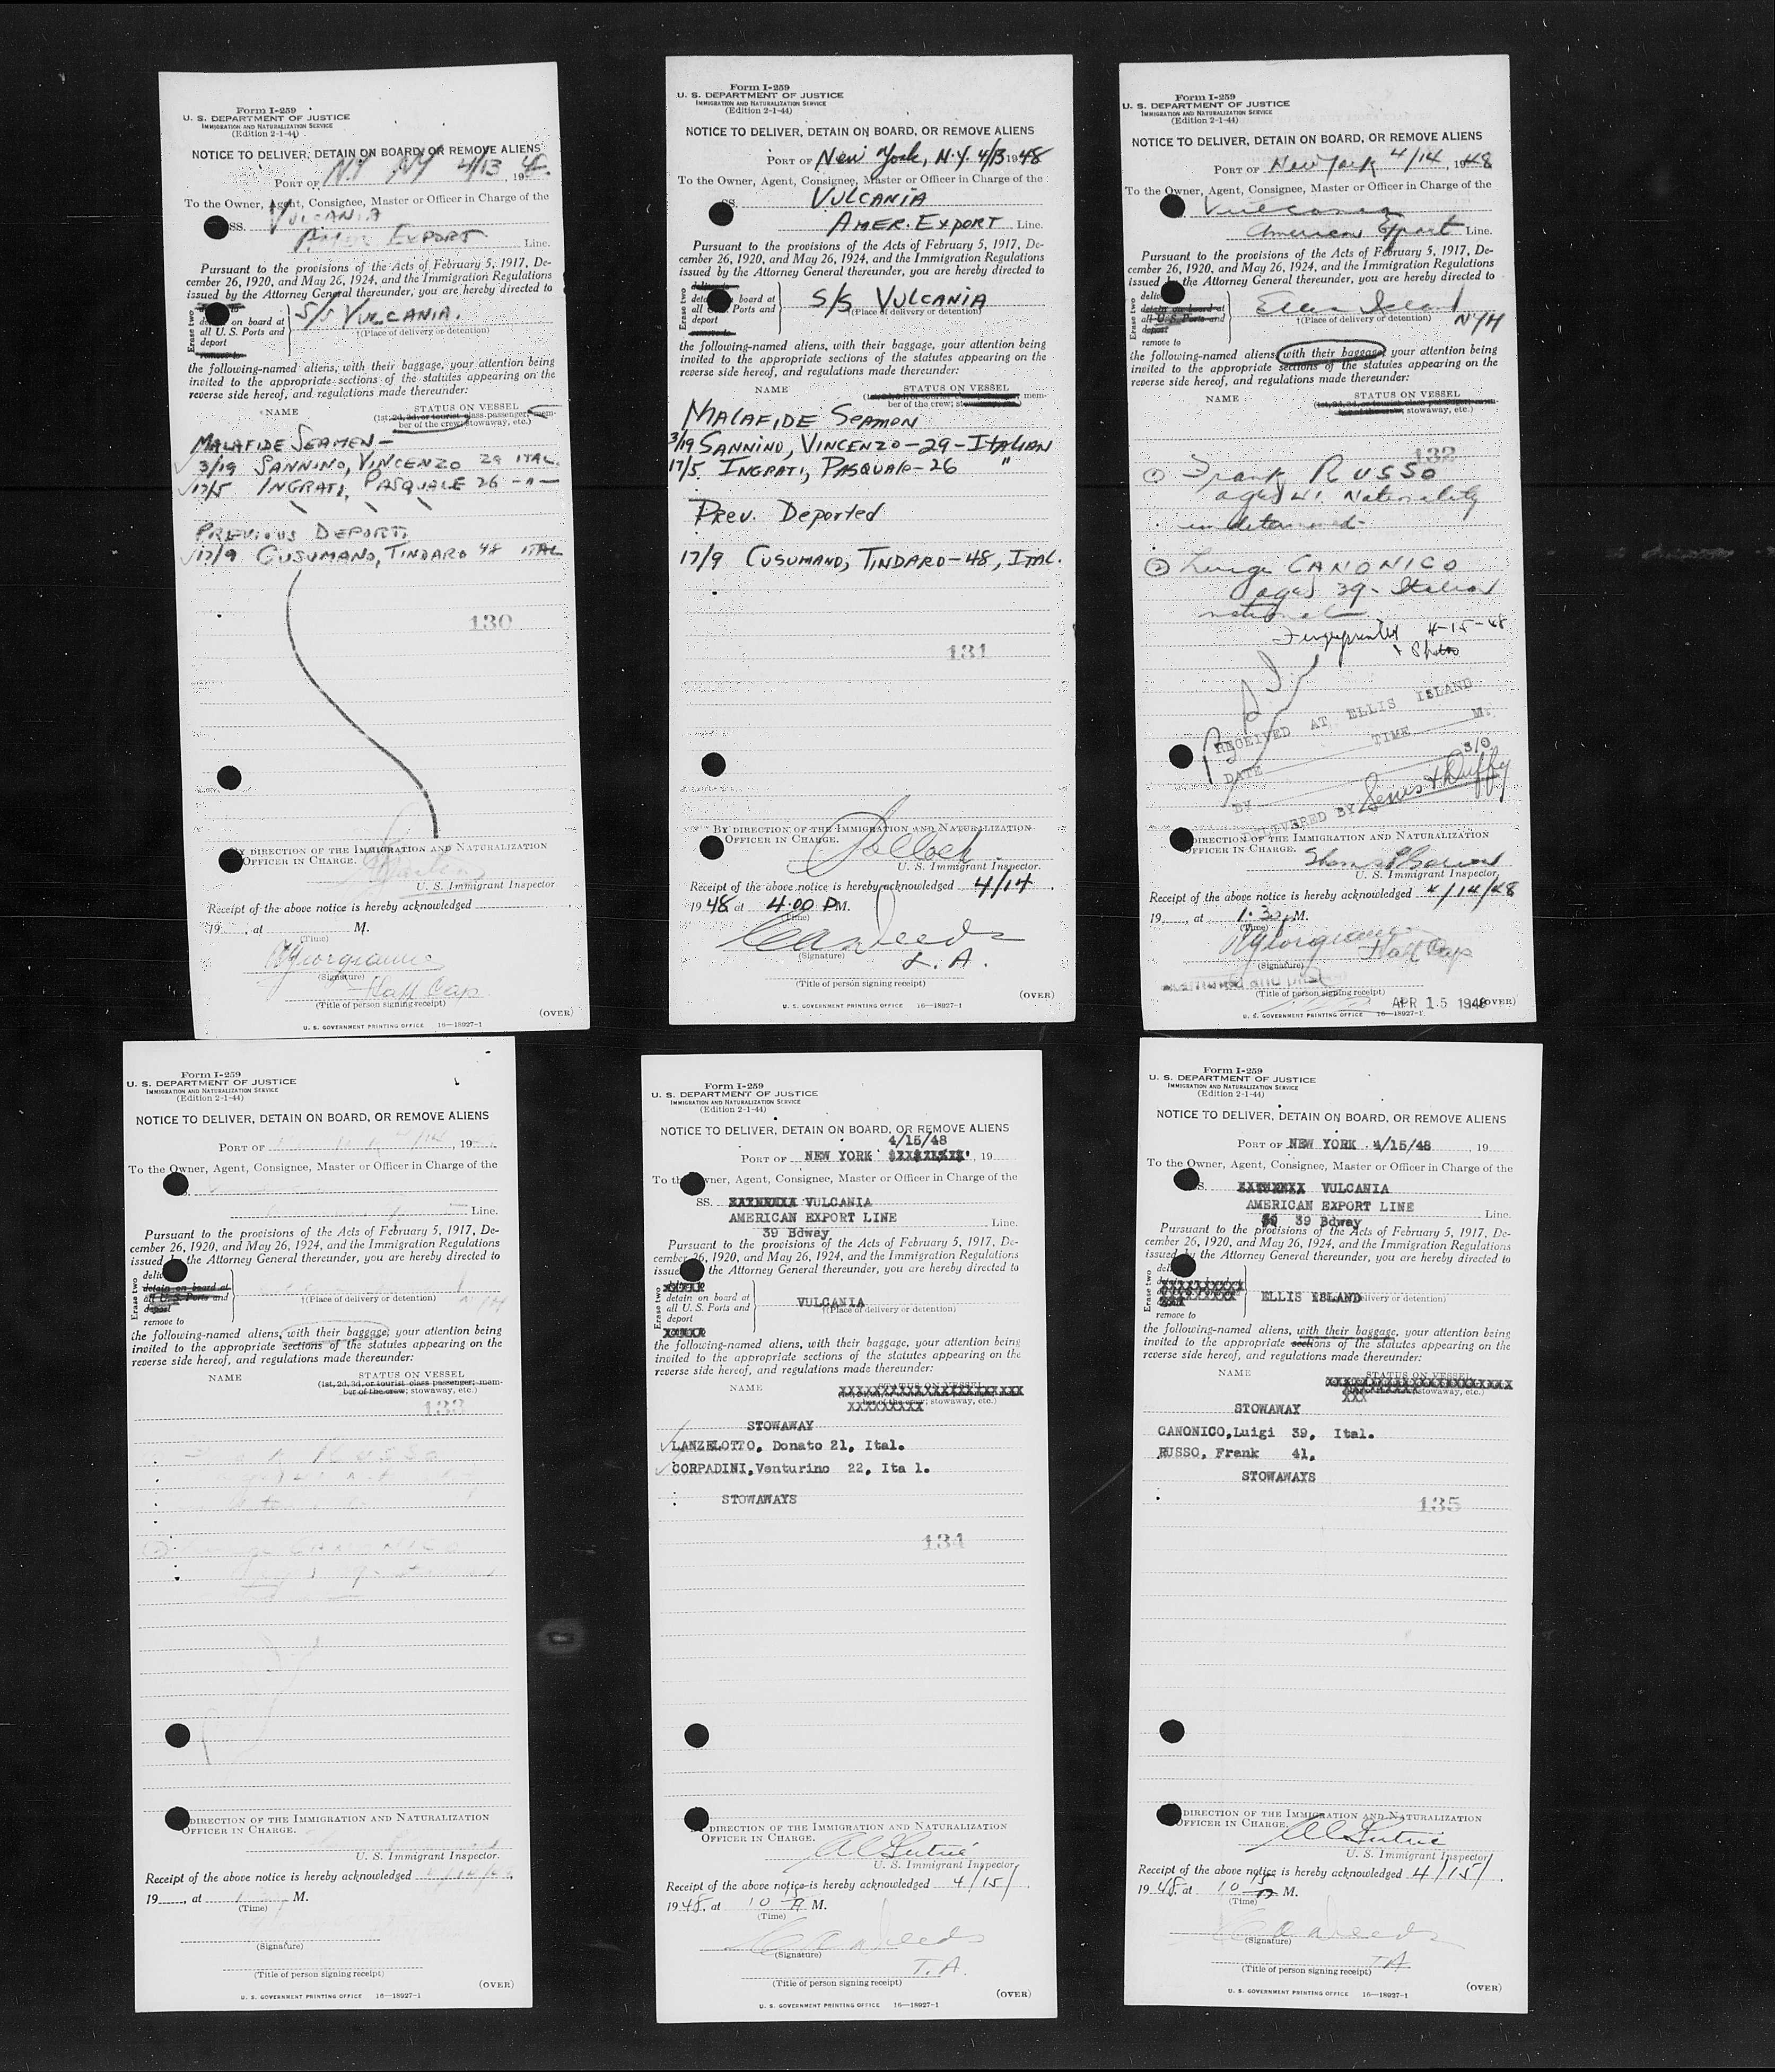 Form I-259
U. S. DEPARTMENT OF JUSTICE
IMMIGRATION AND NATURALIZATION SERVICE
(Edition 2-1-44)
NOTICE TO DELIVER, DETAIN ON BOARD, OR REMOVE ALIENS
PORT OF N.Y. NY 4/13, 19
To the Owner, Agent, Consignee, Master or Officer in Charge of the
SS. VULCANIA
AMER EXPORT Line.
Pursuant to the provisions of the Acts of February 5, 1917, De-
cember 26, 1920, and May 26, 1924, and the Immigration Regulations
issued by the Attorney General thereunder, you are hereby directed to
Erase two
on board at
all U. S. Ports and
deport
S/S VULCANIA.
†(Place of delivery or detention)
the following-named aliens, with their baggage, your attention being
invited to the appropriate sections of the statutes appearing on the
reverse side hereof, and regulations made thereunder:
NAME STATUS ON VESSEL
(1st, 2d, 3d, or tourist class passenger; mem-
ber of the crew; stowaway, etc.)
MALAFIDE SEAMEN-
3/19 SANNINO, VINCENZO 29 ITAL.
17/5 INGRATI, PASQUALE 26 -"-
PREVIOUS DEPORT.
17/9 CUSUMANO, TINDARO 48 ITAL
130
BY DIRECTION OF THE IMMIGRATION AND NATURALIZATION
OFFICER IN CHARGE.
U. S. Immigrant Inspector
Receipt of the above notice is hereby acknowledged
19 , at M.
(Time)
(Signature)
Staff Cap
(Title of person signing receipt)
(OVER)
U. S. GOVERNMENT PRINTING OFFICE 16-18927-1
Form I-259
U. S. DEPARTMENT OF JUSTICE
IMMIGRATION AND NATURALIZATION SERVICE
(Edition 2-1-44)
NOTICE TO DELIVER, DETAIN ON BOARD, OR REMOVE ALIENS
PORT OF New York, N.Y. 4/13 1948
To the Owner, Agent, Consignee, Master or Officer in Charge of the
SS. VULCANIA
AMER. EXPORT Line.
Pursuant to the provisions of the Acts of February 5, 1917, De-
cember 26, 1920, and May 26, 1924, and the Immigration Regulations
issued by the Attorney General thereunder, you are hereby directed to
Erase two
board at
all U. S. Ports and
deport
S/S VULCANIA
†(Place of delivery or detention)
the following-named aliens, with their baggage, your attention being
invited to the appropriate sections of the statutes appearing on the
reverse side hereof, and regulations made thereunder:
NAME STATUS ON VESSEL
mem-
ber of the crew;
MALAFIDE SEAMON
3/19 SANNINO, VINCENZO-29-ITALIAN
17/5 INGRATI, PASQUALE-26 "
Prev. Deported
17/9 CUSUMANO, TINDARO-48, ITAL.
131
BY DIRECTION OF THE IMMIGRATION AND NATURALIZATION
OFFICER IN CHARGE.
U. S. Immigrant Inspector.
Receipt of the above notice is hereby acknowledged 4/14.
1948 at 4:00 PM.
(Time)
(Signature)
(Title of person signing receipt)
(OVER)
U. S. GOVERNMENT PRINTING OFFICE 16-18927-1
Form I-259
U. S. DEPARTMENT OF JUSTICE
IMMIGRATION AND NATURALIZATION SERVICE
(Edition 2-1-44)
NOTICE TO DELIVER, DETAIN ON BOARD, OR REMOVE ALIENS
PORT OF New York 4/14, 1948
To the Owner, Agent, Consignee, Master or Officer in Charge of the
Vulcania
American Export Line.
Pursuant to the provisions of the Acts of February 5, 1917, De-
cember 26, 1920, and May 26, 1924, and the Immigration Regulations
issued by the Attorney General thereunder, you are hereby directed to
Erase two
detain on board at
all U. S. Ports and
deport
remove to
Ellis Island
NYH
†(Place of delivery or detention)
the following-named aliens, with their baggage, your attention being
invited to the appropriate sections of the statutes appearing on the
reverse side hereof, and regulations made thereunder:
NAME STATUS ON VESSEL
(1st, 2d, 3d, or tourist class passenger; mem-
ber of the crew; stowaway, etc.)
132
① Frank RUSSO
aged 41. Nationality
undetermined-
② Luigi CANONICO
aged 39- Italian
national
Fingerprinted 4-15-48
+ Photo
RECEIVED AT ELLIS ISLAND
DATE TIME M.
BY
DELIVERED BY
BY DIRECTION OF THE IMMIGRATION AND NATURALIZATION
OFFICER IN CHARGE.
U. S. Immigrant Inspector.
Receipt of the above notice is hereby acknowledged 4/14/48
19 , at 1:30 PM.
(Time)
Staff Cap
(Signature)
(Title of person signing receipt)
APR 15 1948
(OVER)
U. S. GOVERNMENT PRINTING OFFICE 16-18927-1
Form I-259
U. S. DEPARTMENT OF JUSTICE
IMMIGRATION AND NATURALIZATION SERVICE
(Edition 2-1-44)
NOTICE TO DELIVER, DETAIN ON BOARD, OR REMOVE ALIENS
PORT OF 4/14, 19
To the Owner, Agent, Consignee, Master or Officer in Charge of the
Line.
Pursuant to the provisions of the Acts of February 5, 1917, De-
cember 26, 1920, and May 26, 1924, and the Immigration Regulations
issued by the Attorney General thereunder, you are hereby directed to
Erase two
detain on board at
all U. S. Ports and
deport
remove to
†(Place of delivery or detention)
the following-named aliens, with their baggage, your attention being
invited to the appropriate sections of the statutes appearing on the
reverse side hereof, and regulations made thereunder:
NAME STATUS ON VESSEL
(1st, 2d, 3d, or tourist class passenger; mem-
ber of the crew; stowaway, etc.)
133
Russo
BY DIRECTION OF THE IMMIGRATION AND NATURALIZATION
OFFICER IN CHARGE.
U. S. Immigrant Inspector.
Receipt of the above notice is hereby acknowledged
19 , at M.
(Time)
(Signature)
(Title of person signing receipt)
(OVER)
U. S. GOVERNMENT PRINTING OFFICE 16-18927-1
Form I-259
U. S. DEPARTMENT OF JUSTICE
IMMIGRATION AND NATURALIZATION SERVICE
(Edition 2-1-44)
NOTICE TO DELIVER, DETAIN ON BOARD, OR REMOVE ALIENS
4/15/48
PORT OF NEW YORK , 19
To the Owner, Agent, Consignee, Master or Officer in Charge of the
SS. VULCANIA
AMERICAN EXPORT LINE Line.
39 Bdway
Pursuant to the provisions of the Acts of February 5, 1917, De-
cember 26, 1920, and May 26, 1924, and the Immigration Regulations
issued by the Attorney General thereunder, you are hereby directed to
Erase two
detain on board at
all U. S. Ports and
deport
VULCANIA
†(Place of delivery or detention)
the following-named aliens, with their baggage, your attention being
invited to the appropriate sections of the statutes appearing on the
reverse side hereof, and regulations made thereunder:
NAME STATUS ON VESSEL
ber of the crew; stowaway, etc.)
STOWAWAY
LANZELOTTO, Donato 21, Ital.
CORPADINI, Venturino 22, Ita l.
STOWAWAYS
134
BY DIRECTION OF THE IMMIGRATION AND NATURALIZATION
OFFICER IN CHARGE.
U. S. Immigrant Inspector
Receipt of the above notice is hereby acknowledged 4/15/
1948, at 10 15 A M.
(Time)
(Signature)
T.A.
(Title of person signing receipt)
(OVER)
U. S. GOVERNMENT PRINTING OFFICE 16-18927-1
Form I-259
U. S. DEPARTMENT OF JUSTICE
IMMIGRATION AND NATURALIZATION SERVICE
(Edition 2-1-44)
NOTICE TO DELIVER, DETAIN ON BOARD, OR REMOVE ALIENS
PORT OF NEW YORK 4/15/48 , 19
To the Owner, Agent, Consignee, Master or Officer in Charge of the
S. VULCANIA
AMERICAN EXPORT LINE Line.
39 Bdway
Pursuant to the provisions of the Acts of February 5, 1917, De-
cember 26, 1920, and May 26, 1924, and the Immigration Regulations
issued by the Attorney General thereunder, you are hereby directed to
Erase two
remove to
ELLIS ISLAND
delivery or detention)
the following-named aliens, with their baggage, your attention being
invited to the appropriate sections of the statutes appearing on the
reverse side hereof, and regulations made thereunder:
NAME STATUS ON VESSEL
stowaway, etc.)
STOWAWAY
CANONICO, Luigi 39, Ital.
RUSSO, Frank 41,
STOWAWAYS
135
BY DIRECTION OF THE IMMIGRATION AND NATURALIZATION
OFFICER IN CHARGE.
U. S. Immigrant Inspector
Receipt of the above notice is hereby acknowledged 4/15/
1948, at 10 15 M.
(Time)
(Signature)
TA
(Title of person signing receipt)
(OVER)
U. S. GOVERNMENT PRINTING OFFICE 16-18927-1